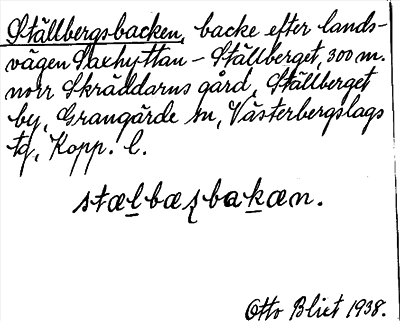 Ställbergsbacken, backe efter lands-
vägen Saxhyttan – Ställberget, 300 m.
norr Skräddarns gård, Ställberget
by, Grangärde sn, Västerbergslags
tg, Kopp. l.
stælbæʂbakæn.
Otto Blixt 1938.